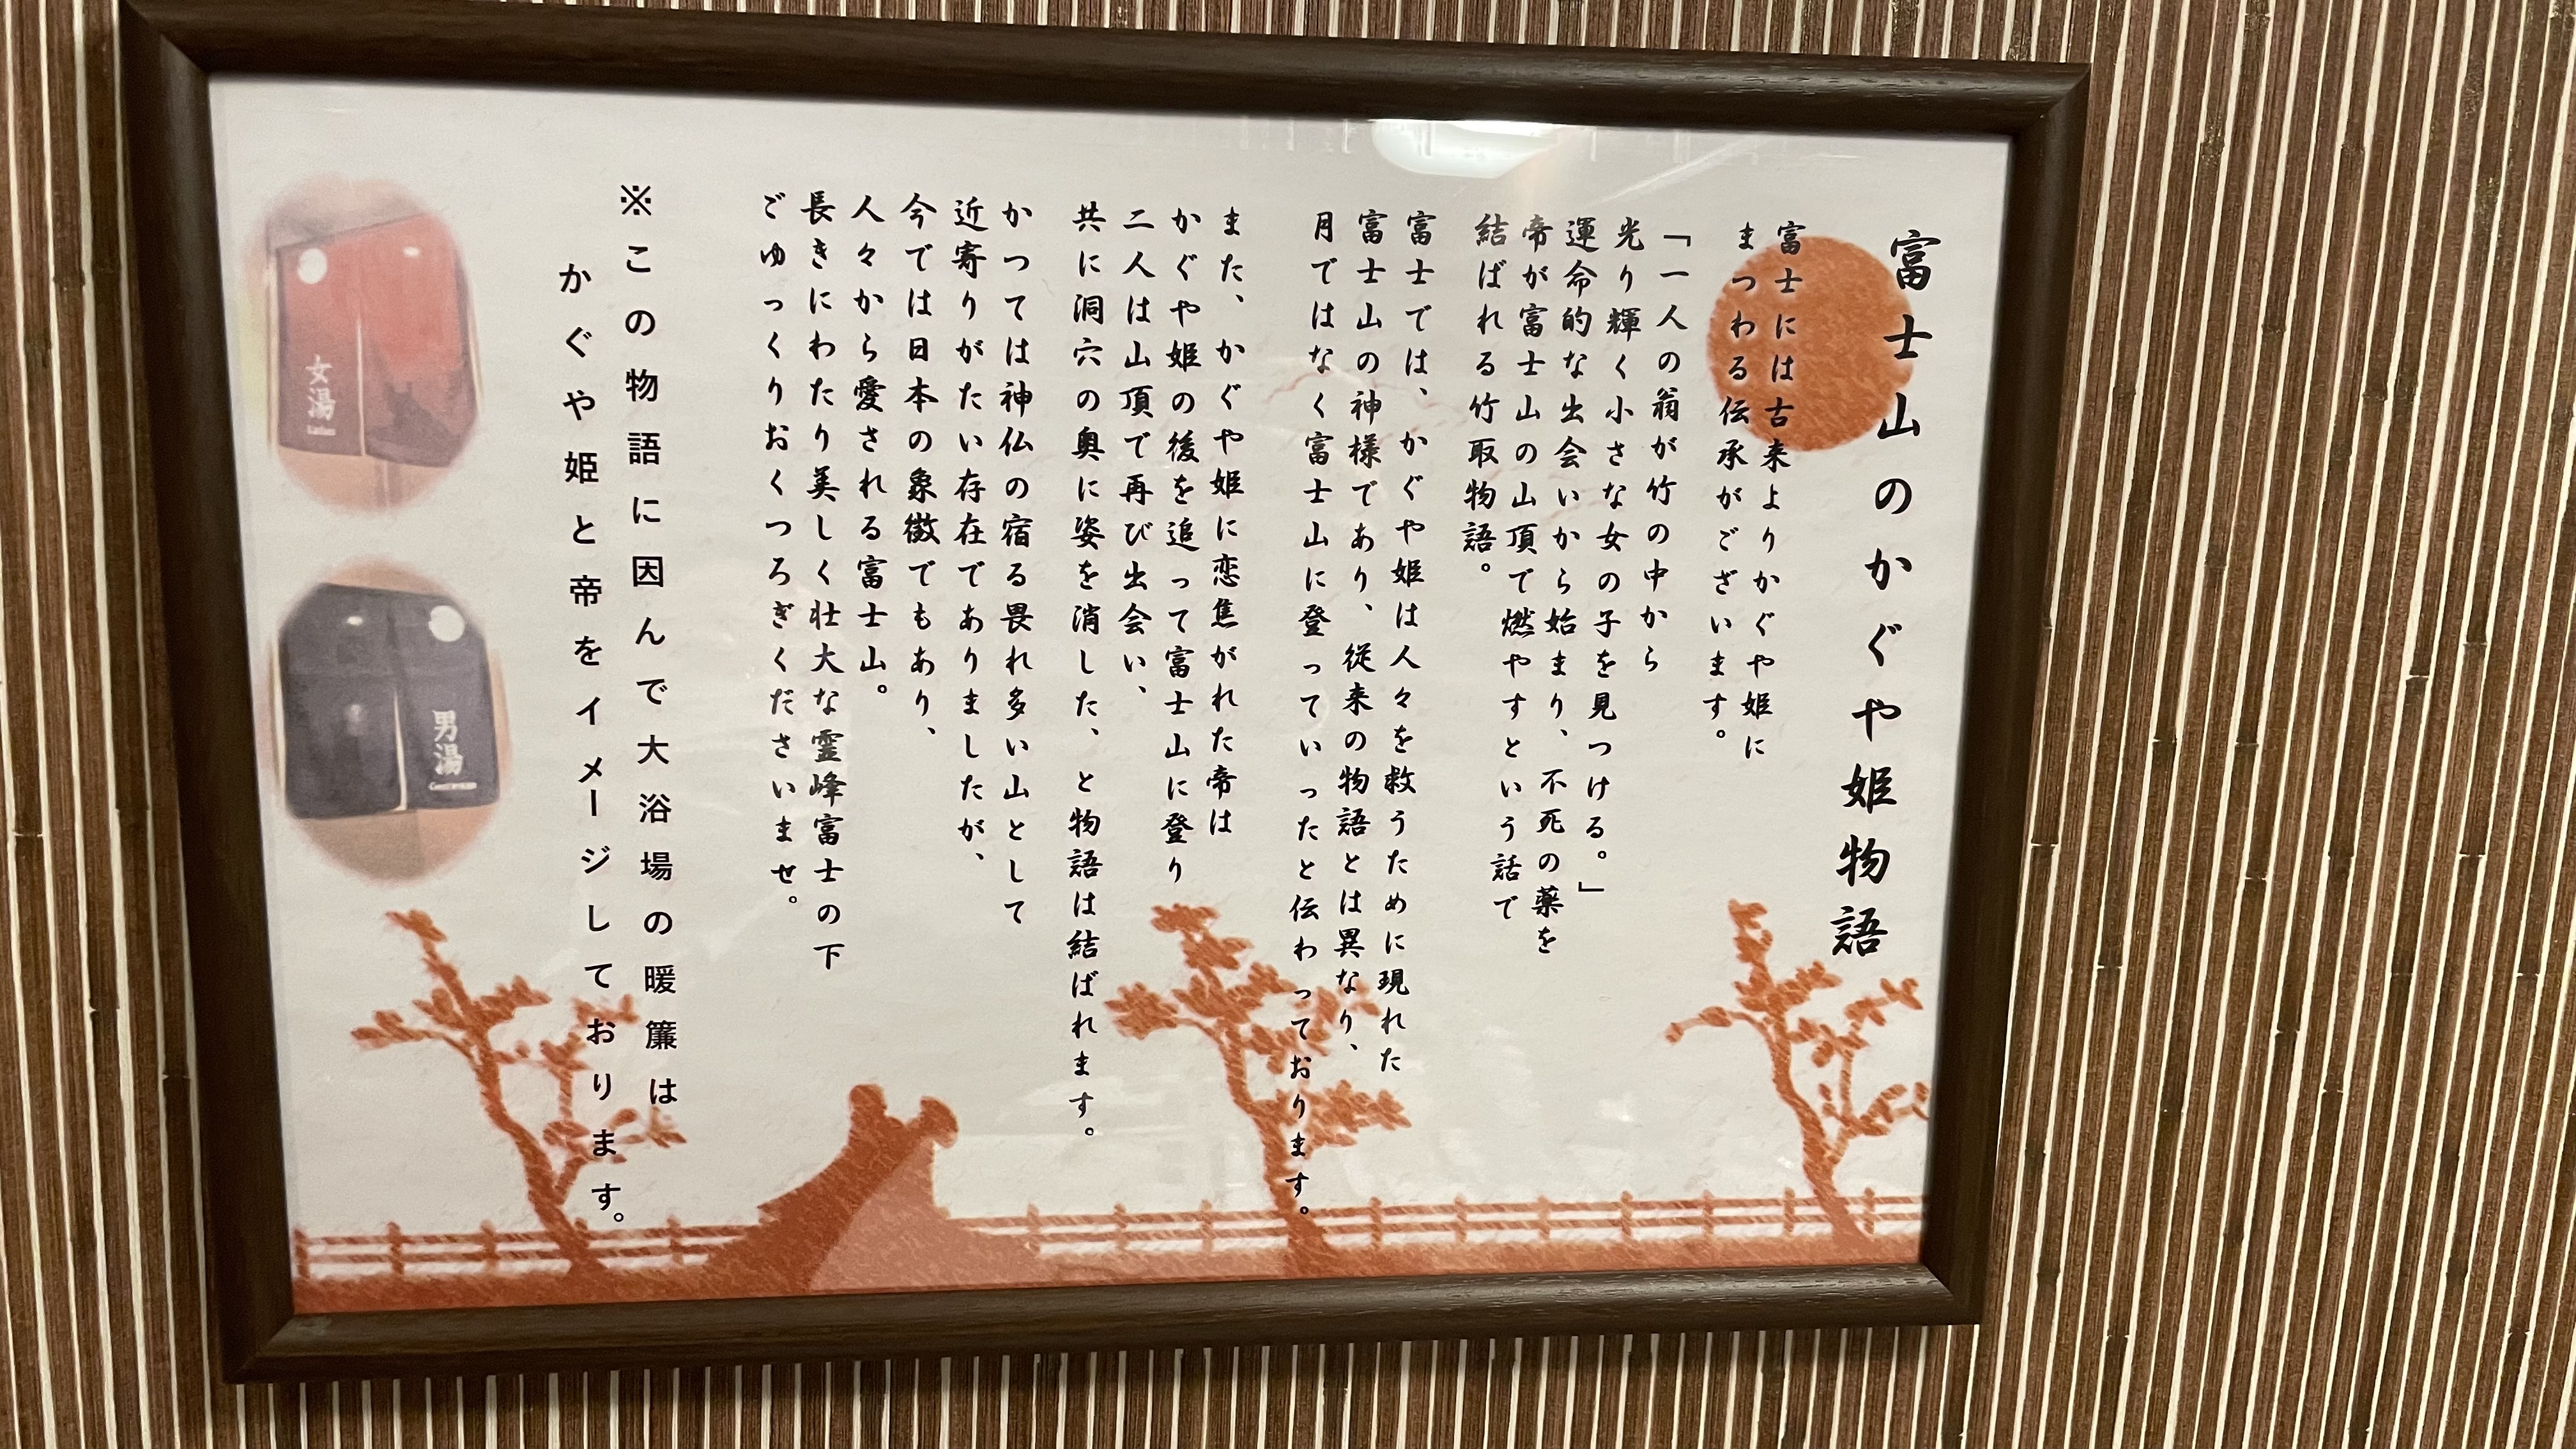 富士山のかぐや姫物語
富士には古来よりかぐや姫に
まつわる伝承がございます。
「一人の翁が竹の中から
光り輝く小さな女の子を見つける。」
運命的な出会いから始まり、不死の薬を
帝が富士山の山頂で燃やすという話で
結ばれる竹取物語。
富士では、かぐや姫は人々を救うために現れた
富士山の神様であり、従来の物語とは異なり、
月ではなく富士山に登っていったと伝わっております。
また、かぐや姫に恋焦がれた帝は
かぐや姫の後を追って富士山に登り
二人は山頂で再び出会い、
共に洞穴の奥に姿を消した、と物語は結ばれます。
かつては神仏の宿る畏れ多い山として
近寄りがたい存在でありましたが、
今では日本の象徴でもあり、
人々から愛される富士山。
長きにわたり美しく壮大な霊峰富士の下
ごゆっくりおくつろぎくださいませ。
※この物語に因んで大浴場の暖簾は
かぐや姫と帝をイメージしております。
女湯
Ladies
男湯
Gentlemen